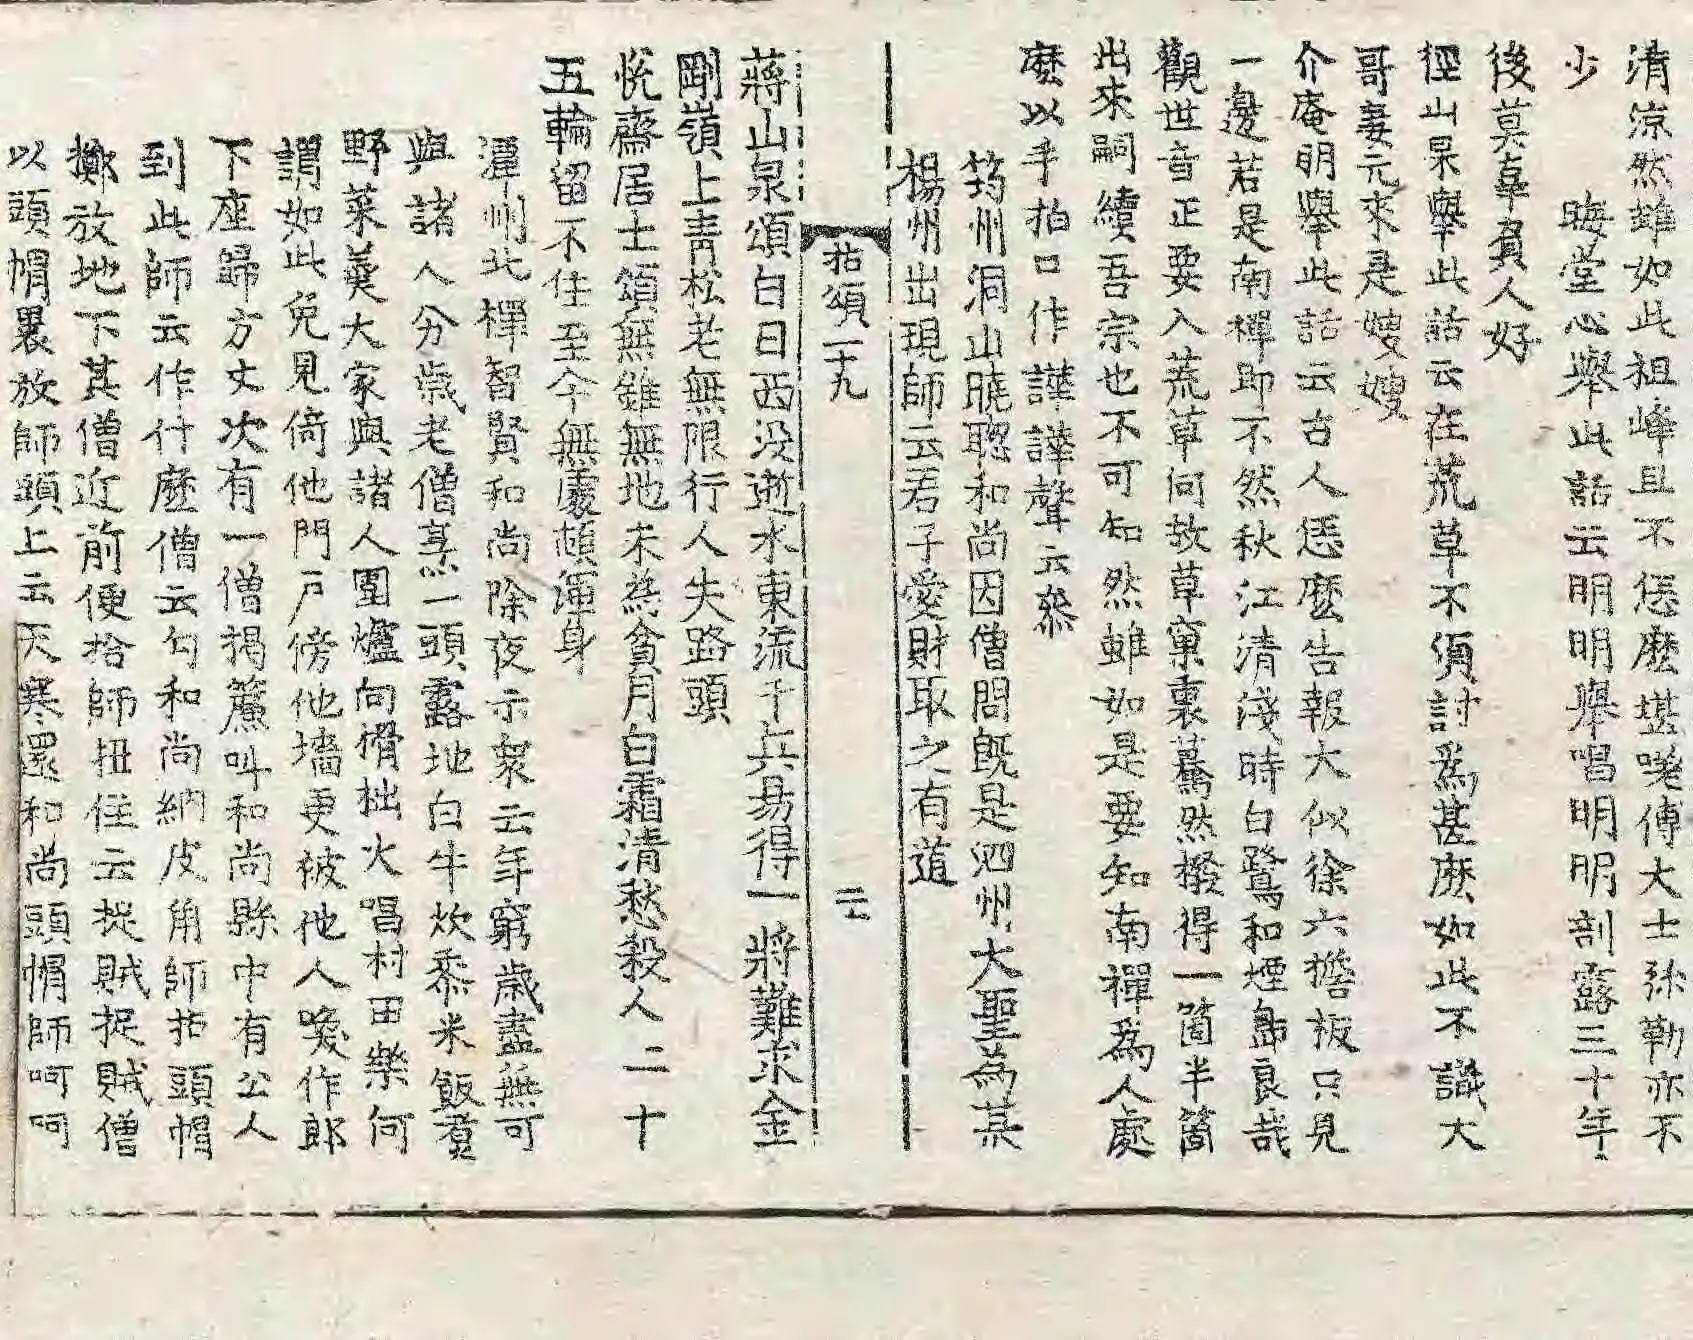 清涼然雖如此祖峰且不恁麽堪嗟傅大士弥勒亦不
少　晦堂心舉此話云明明舉唱明明剖露三十年
後莫辜負人好
徑山杲舉此話云在荒草不湏討爲甚麽如此不識大
哥妻元來是嫂嫂
介庵朋舉此話云古人恁麽告報大似徐六擔板只見
一邊若是南禪即不然秋江清淺時白鷺和煙島良哉
觀世音正要入荒草何故草窠裏驀然撥得一箇半箇
出來嗣續吾宗也不可知然雖如是要知南禪爲人處
麽以手拍口作譁譁聲云叅
筠州洞山曉聦和尚因僧問旣是泗州大聖為甚
楊州出現師云君子愛財取之有道
拈頌二十九
二七
蔣山泉頌白日西沒逝水東流千兵易得一將難求金
剛嶺上靑松老無限行人失路頭
悅齋居士頌無錐無地未為貧月白霜清愁殺人二十
五輪留不住至今無處頓渾身
潭州北禪智賢和尚除夜示衆云年窮歲盡無可
與諸人分歲老僧烹一頭露地白牛炊黍米飯煑
野菜羹大家與諸人圍爐向榾柮火唱村田樂何
謂如此免見倚他門戶傍他墻更被他人喚作郎
下座歸方丈次有一僧揭簾叫和尚縣中有公人
到此師云作什麽僧云勾和尚納皮角師拈頭帽
擲放地下其僧近前便拾師扭住云捉賊捉賊僧
以頭帽裹放師頭上云天寒還和尚頭帽師呵呵